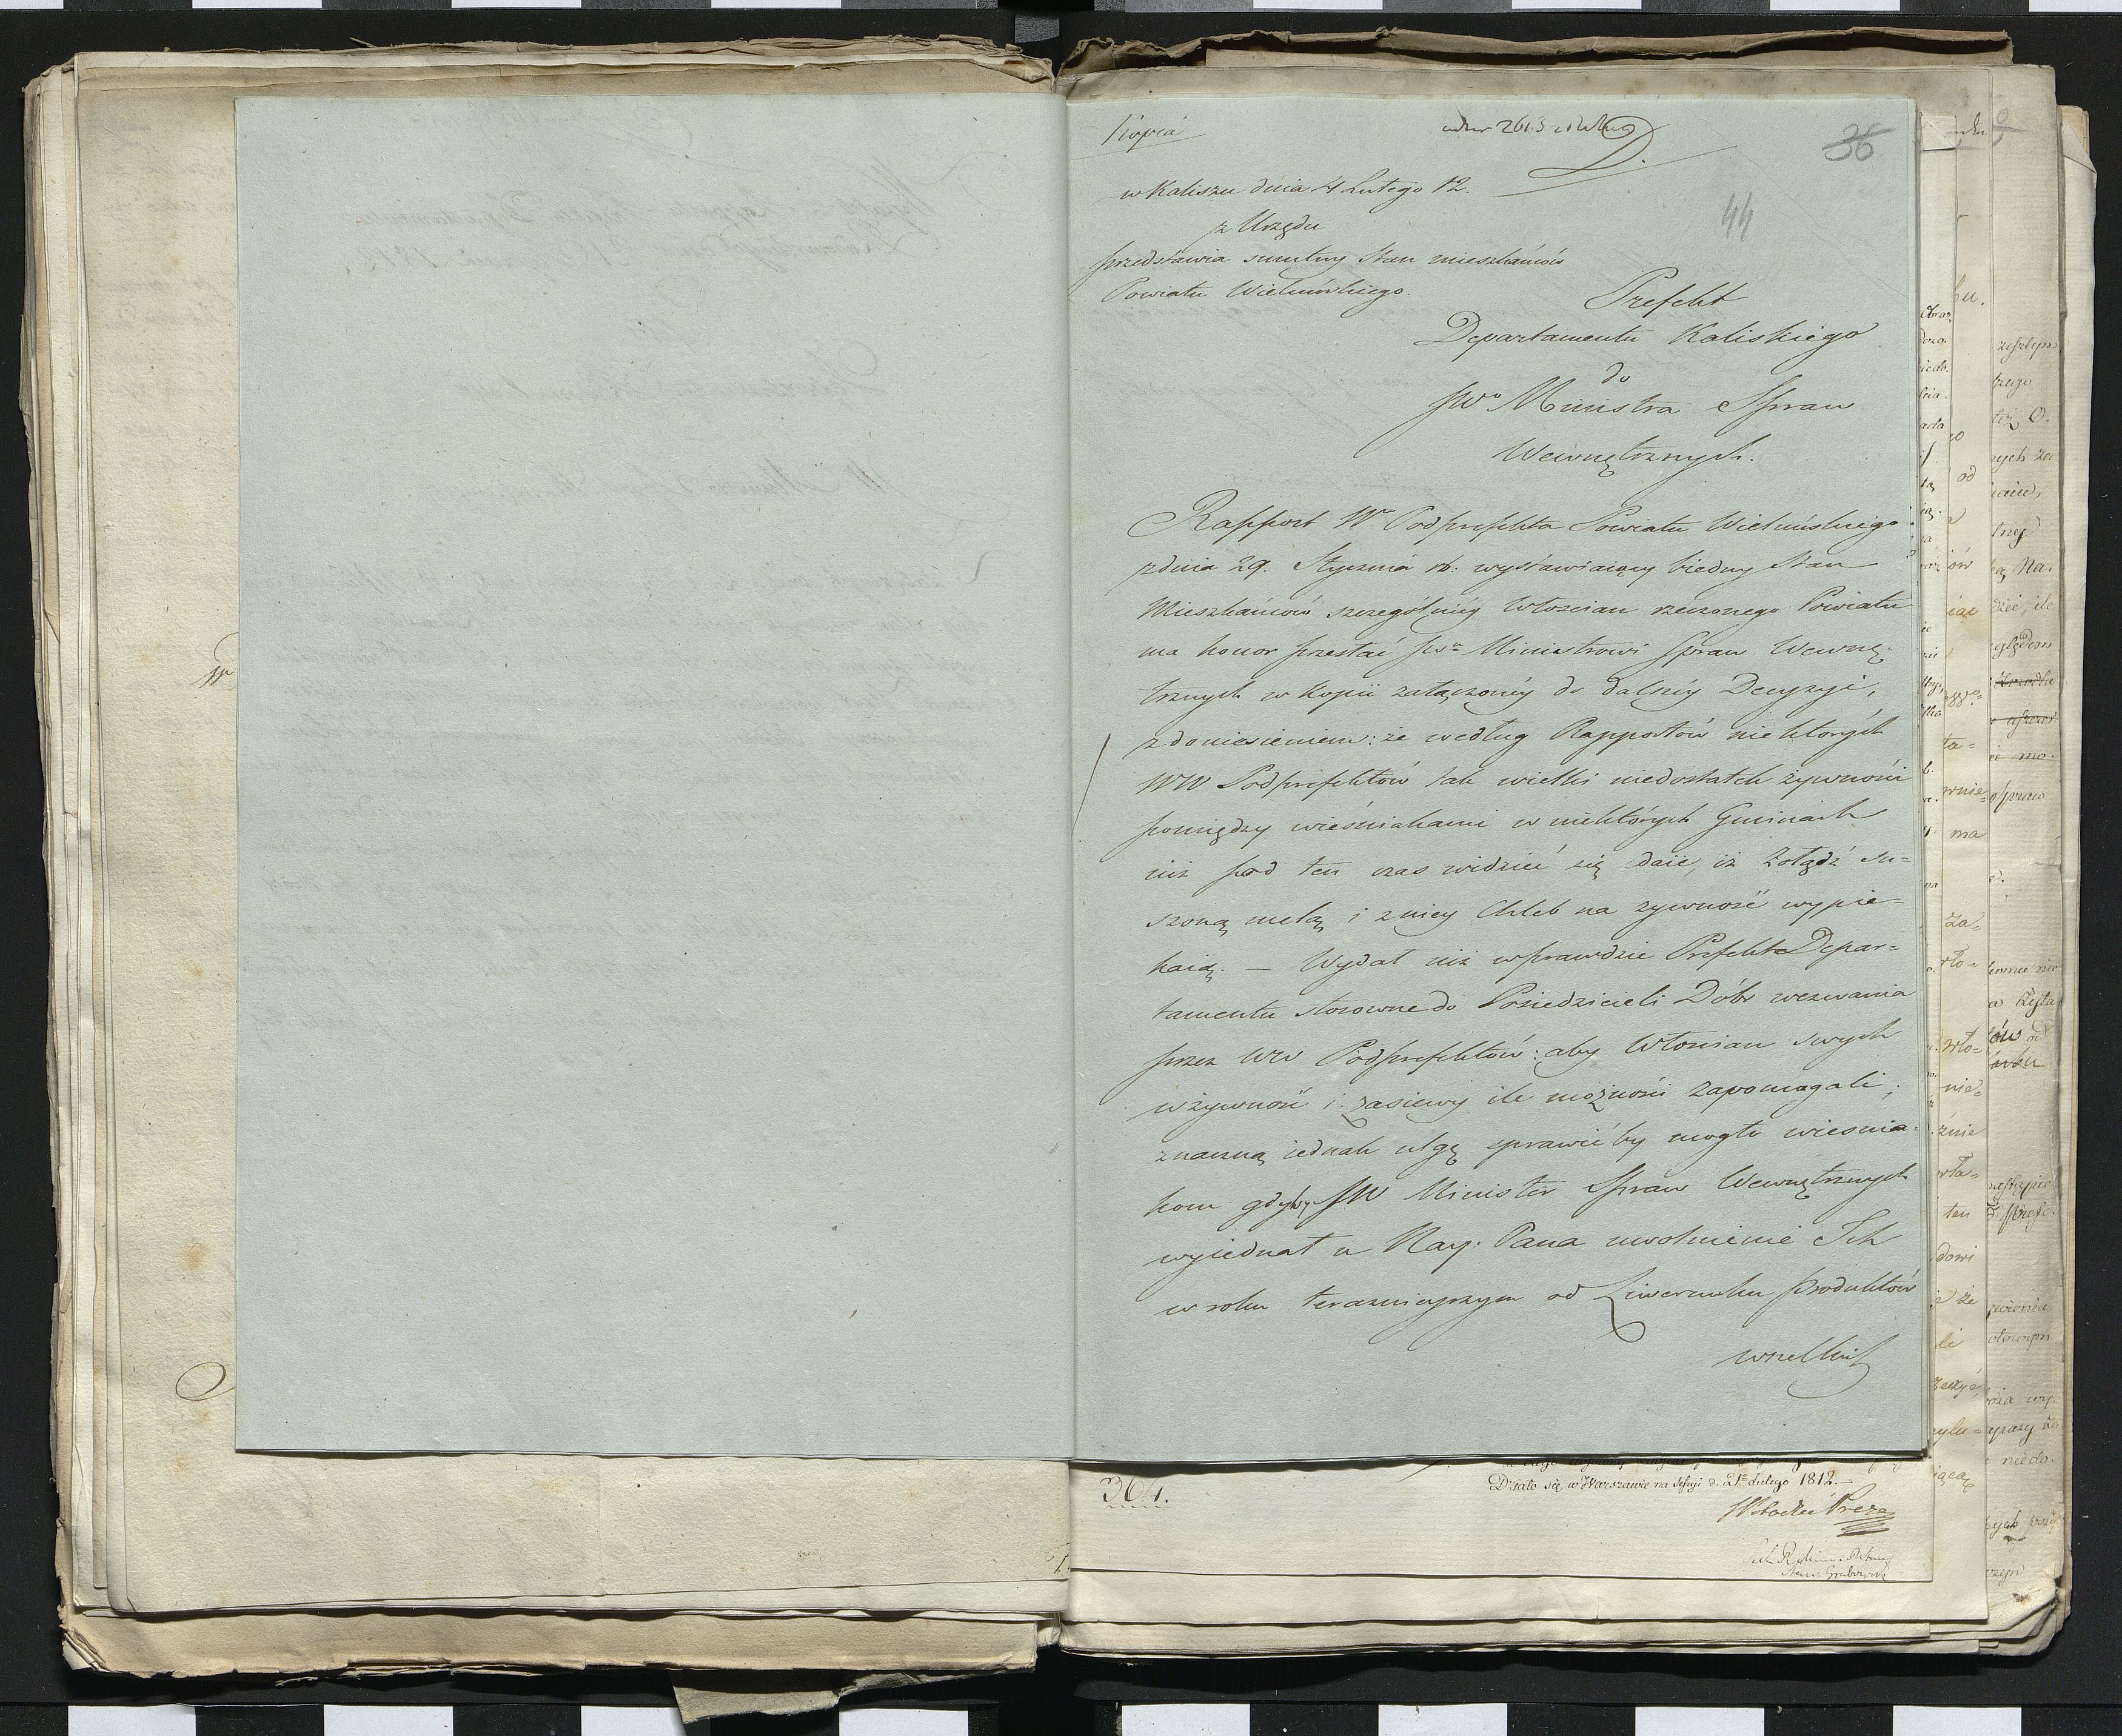 Kopia
2613
D.
36
44
w Kaliszu dnia 4 Lutego 12.
z Urzędu
przedstawia smutny Stan mieszkańców
Powiatu Wieluńskiego.
Prefekt
Departamentu Kaliskiego
do
JWo Ministra Spraw
Wewnętrznych.
Rapport Wo Podprefekta Powiatu Wieluńskiego
z dnia 29. Stycznia rb: wystawiaiący biedny Stan
Mieszkańców szczególniéy Włoscian rzeczonego Powiatu
ma honor przesłać JWu Ministrowi Spraw Wewnę-
trznych w kopii załączonéy do dalszéy Decyzyi,
z doniesieniem: że według Rapportów niektórych
WW Podprefektów tak wielki niedostatek żywności
pomiędzy wieśniakami w niektórych Gminach
iuż pod ten czas widzieć się daie, iż Żołądź su=
szoną melą i z niey Chleb na zywność wypie=
kaią. — Wydał iuż wprawdzie Prefekt Depar=
tamentu stosowne do Posiedzicieli Dóbr wezwania
przez WW Podprefektów: aby Włoscian swych
w żywność i zasiewy ile możności zapomagali,
znaczną iednak ulgę sprawić by mogło wiesnia=
kom gdyby JW Minister Spraw Wewnętrznych
wyiednał u Nay: Pana uwolnienie Ich
w roku teraznieyszym od Liwerunku produktów
wszelkich
364.
Działo się w Warszawie na Sessyi d. 21o Lutego 1812.